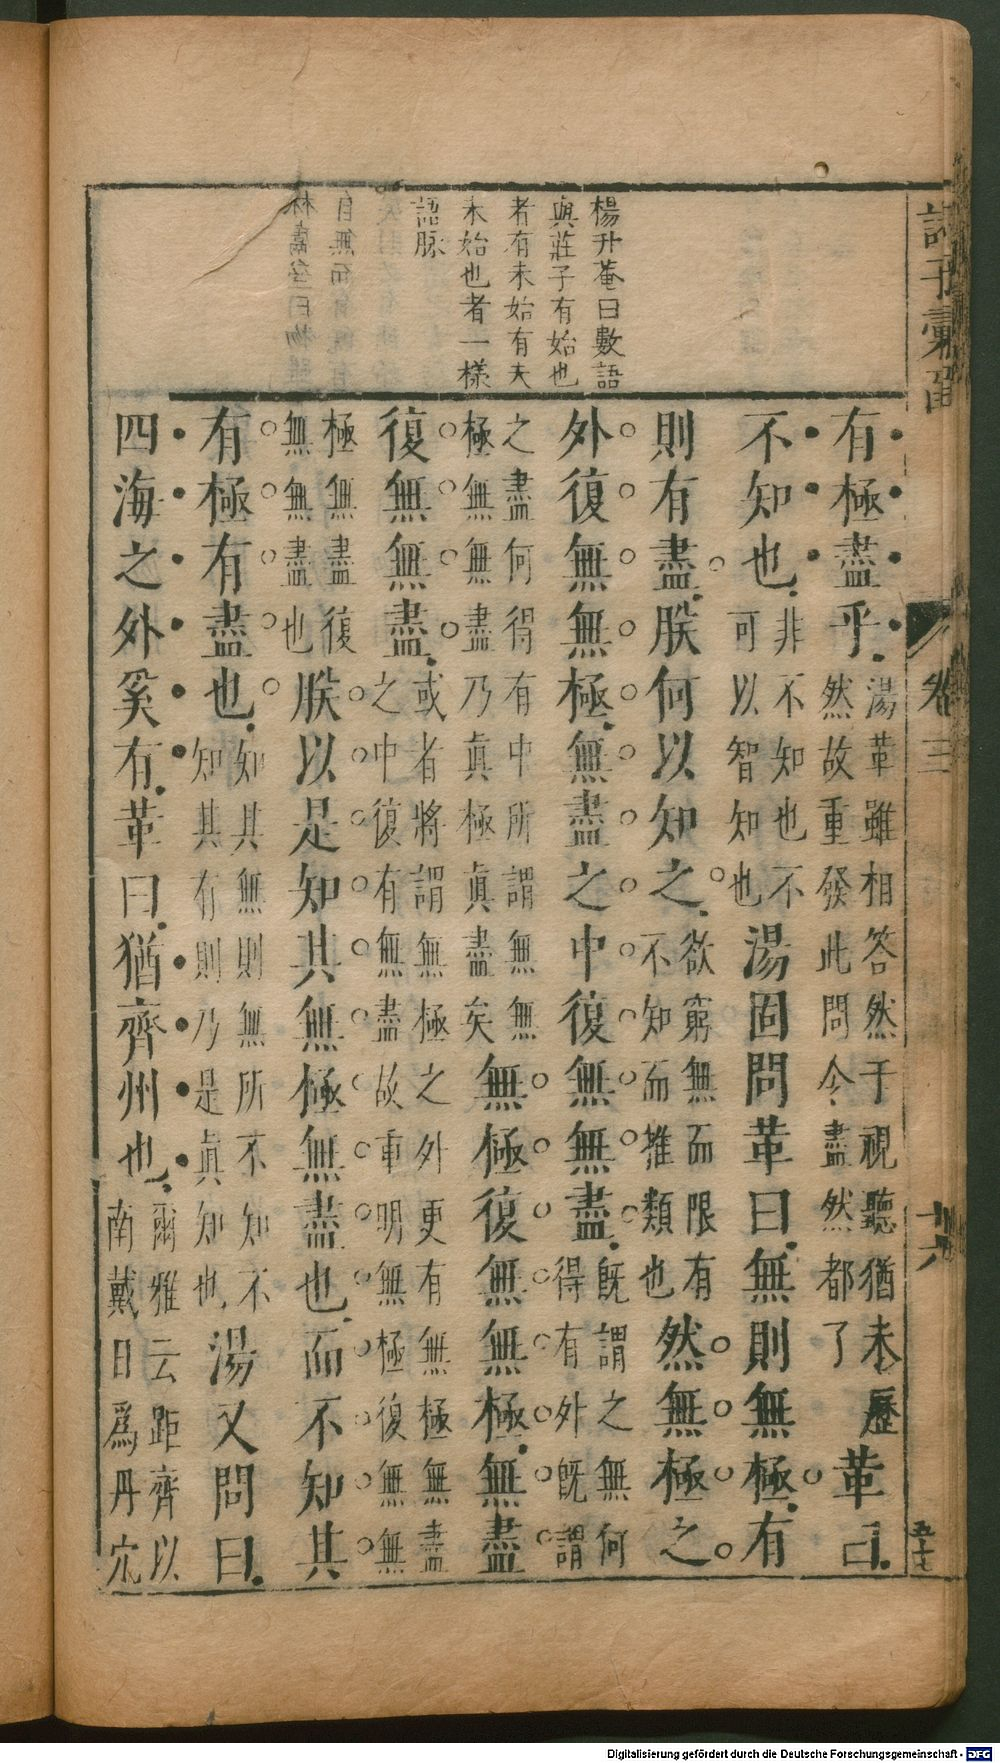 諸子彙函
卷三
楊升菴曰數語
與莊子有始也
者有未始有夫
未始也者一樣
語脉
有極盡乎湯革雖相答然于視聽猶未歷然故重發此問令盡然都了革曰
不知也非不知也不可以智知也湯固問革曰無則無極有
則有盡朕何以知之欲窮無而限有不知而推類也然無極之
外復無無極無盡之中復無無盡既謂之無何得有外既謂
之盡何得有中所謂無無極無無盡乃眞極眞盡矣無極復無無極無盡
復無無盡或者將謂無極之外更有無極無盡之中復有無盡故重明無極復無無
極無盡復無無盡也朕以是知其無極無盡也而不知其
有極有盡也如其無則無所不知不知其有則乃是眞知也湯又問曰
四海之外奚有革曰猶齊州也爾雅云距齊以南戴日爲丹穴
Digitalisierung gefördert durch die Deutsche Forschungsgemeinschaft - DFG